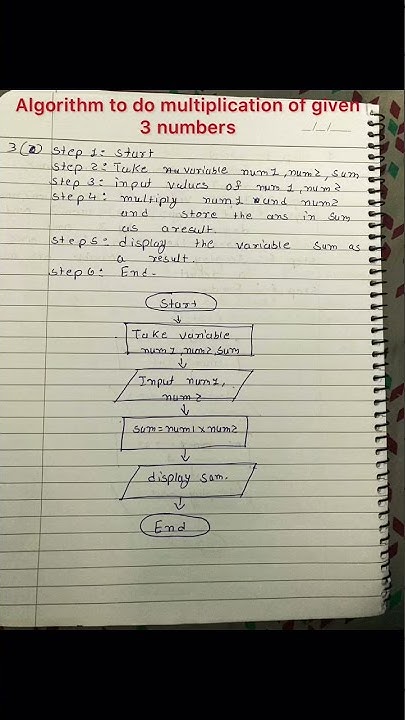 Algorithm to do multiplication of given
3 numbers
_/_/__
3 (a) Step 1: Start
Step 2: Take variable num1, num2, sum
Step 3: input values of num1, num2
Step 4: multiply num1 and num2
and store the ans in sum
as a result.
Step 5: display the variable sum as
a result.
Step 6: End.
Start
Take variable
num1, num2, sum
Input num1,
num2
sum=num1×num2
display sum.
End